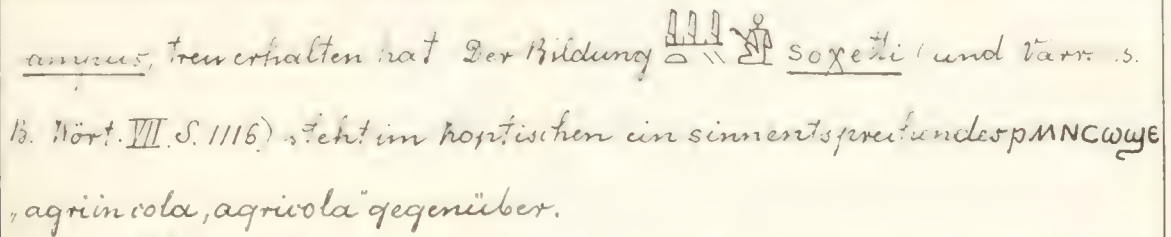 amnus, treu erhalten hat Der Bildung 𓇏𓏏𓏭𓀀 soχeti (und Varr. s.
B. Wört. VII S. 1116) steht im koptischen ein sinnentsprechendes ⲣⲙⲛⲥⲱϣⲉ
„agri incola, agricola" gegenüber.